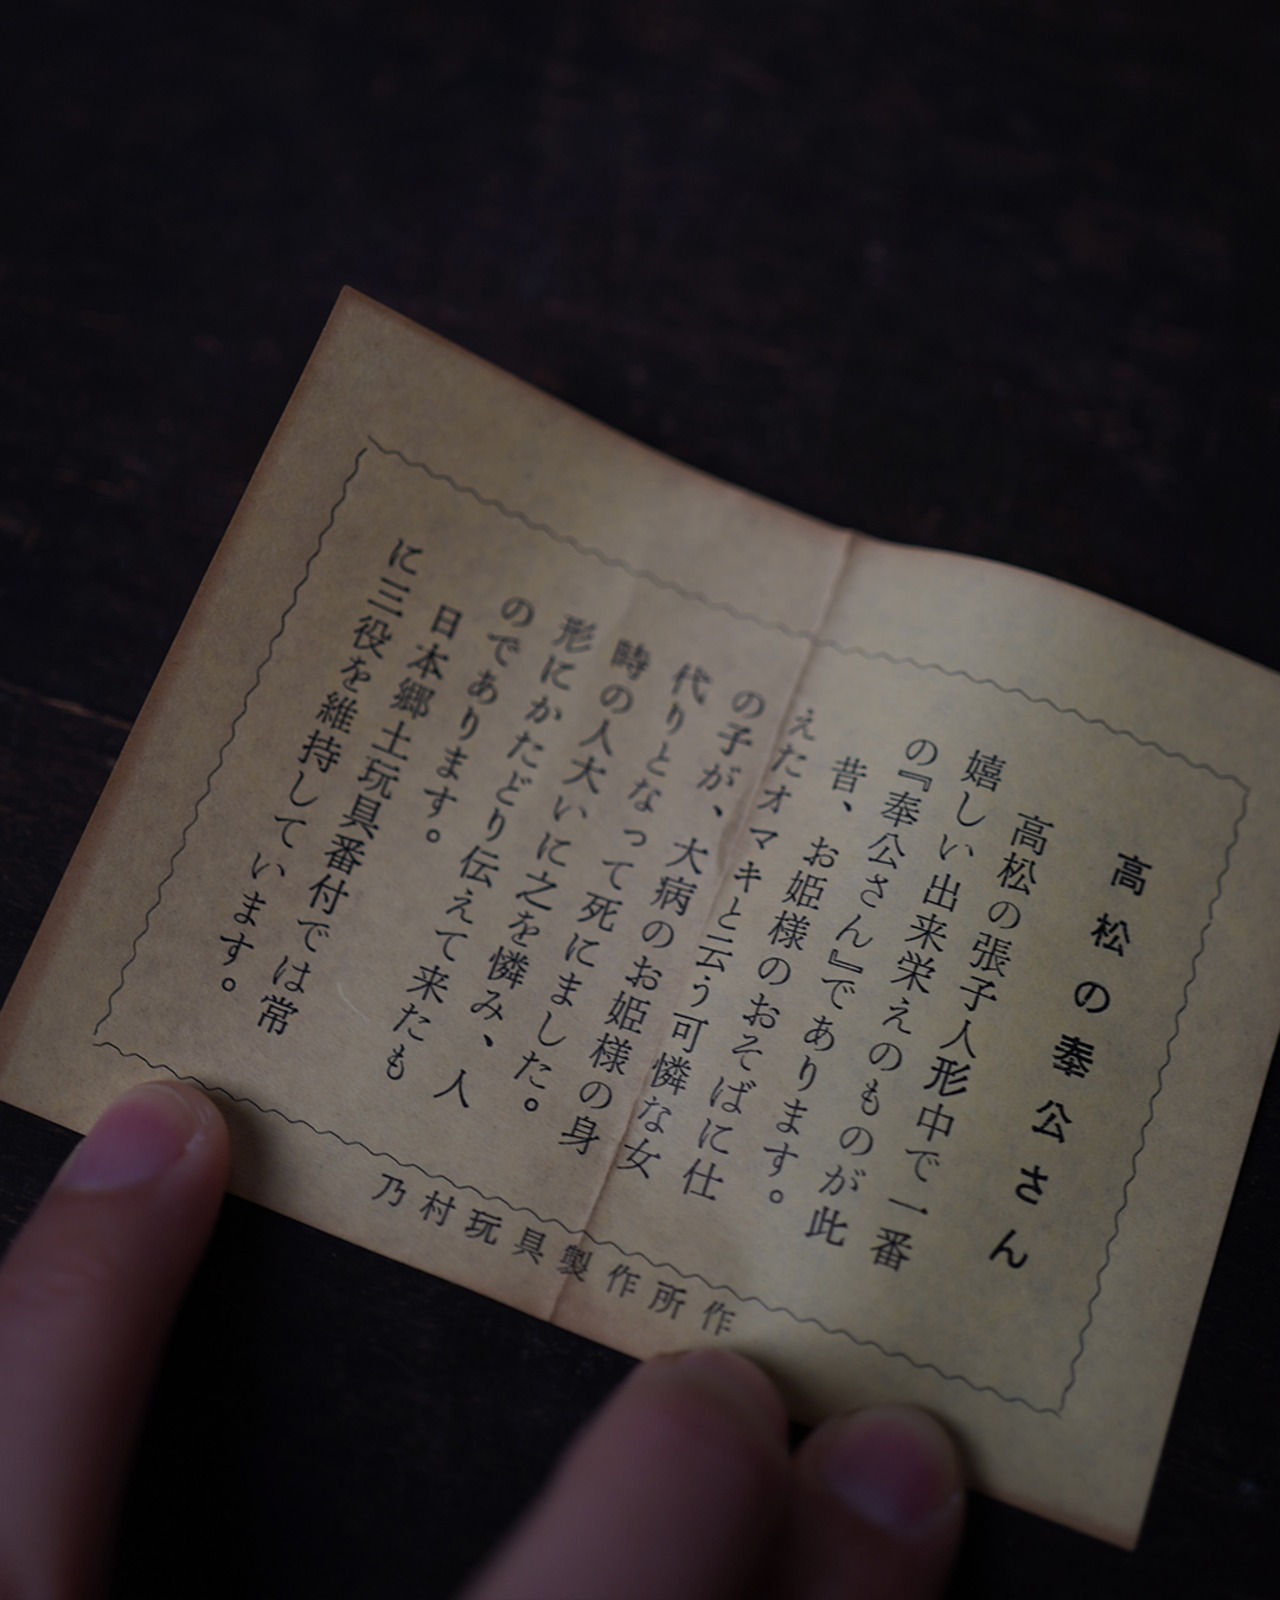 高松の奉公さん
高松の張子人形中で一番
嬉しい出来栄えのものが此
の『奉公さん』であります。
昔、お姫様のおそばに仕
えたオマキと云う可憐な女
の子が、大病のお姫様の身
代りとなって死にました。
時の人大いに之を憐み、人
形にかたどり伝えて来たも
のであります。
日本郷土玩具番付では常
に三役を維持しています。
乃村玩具製作所作